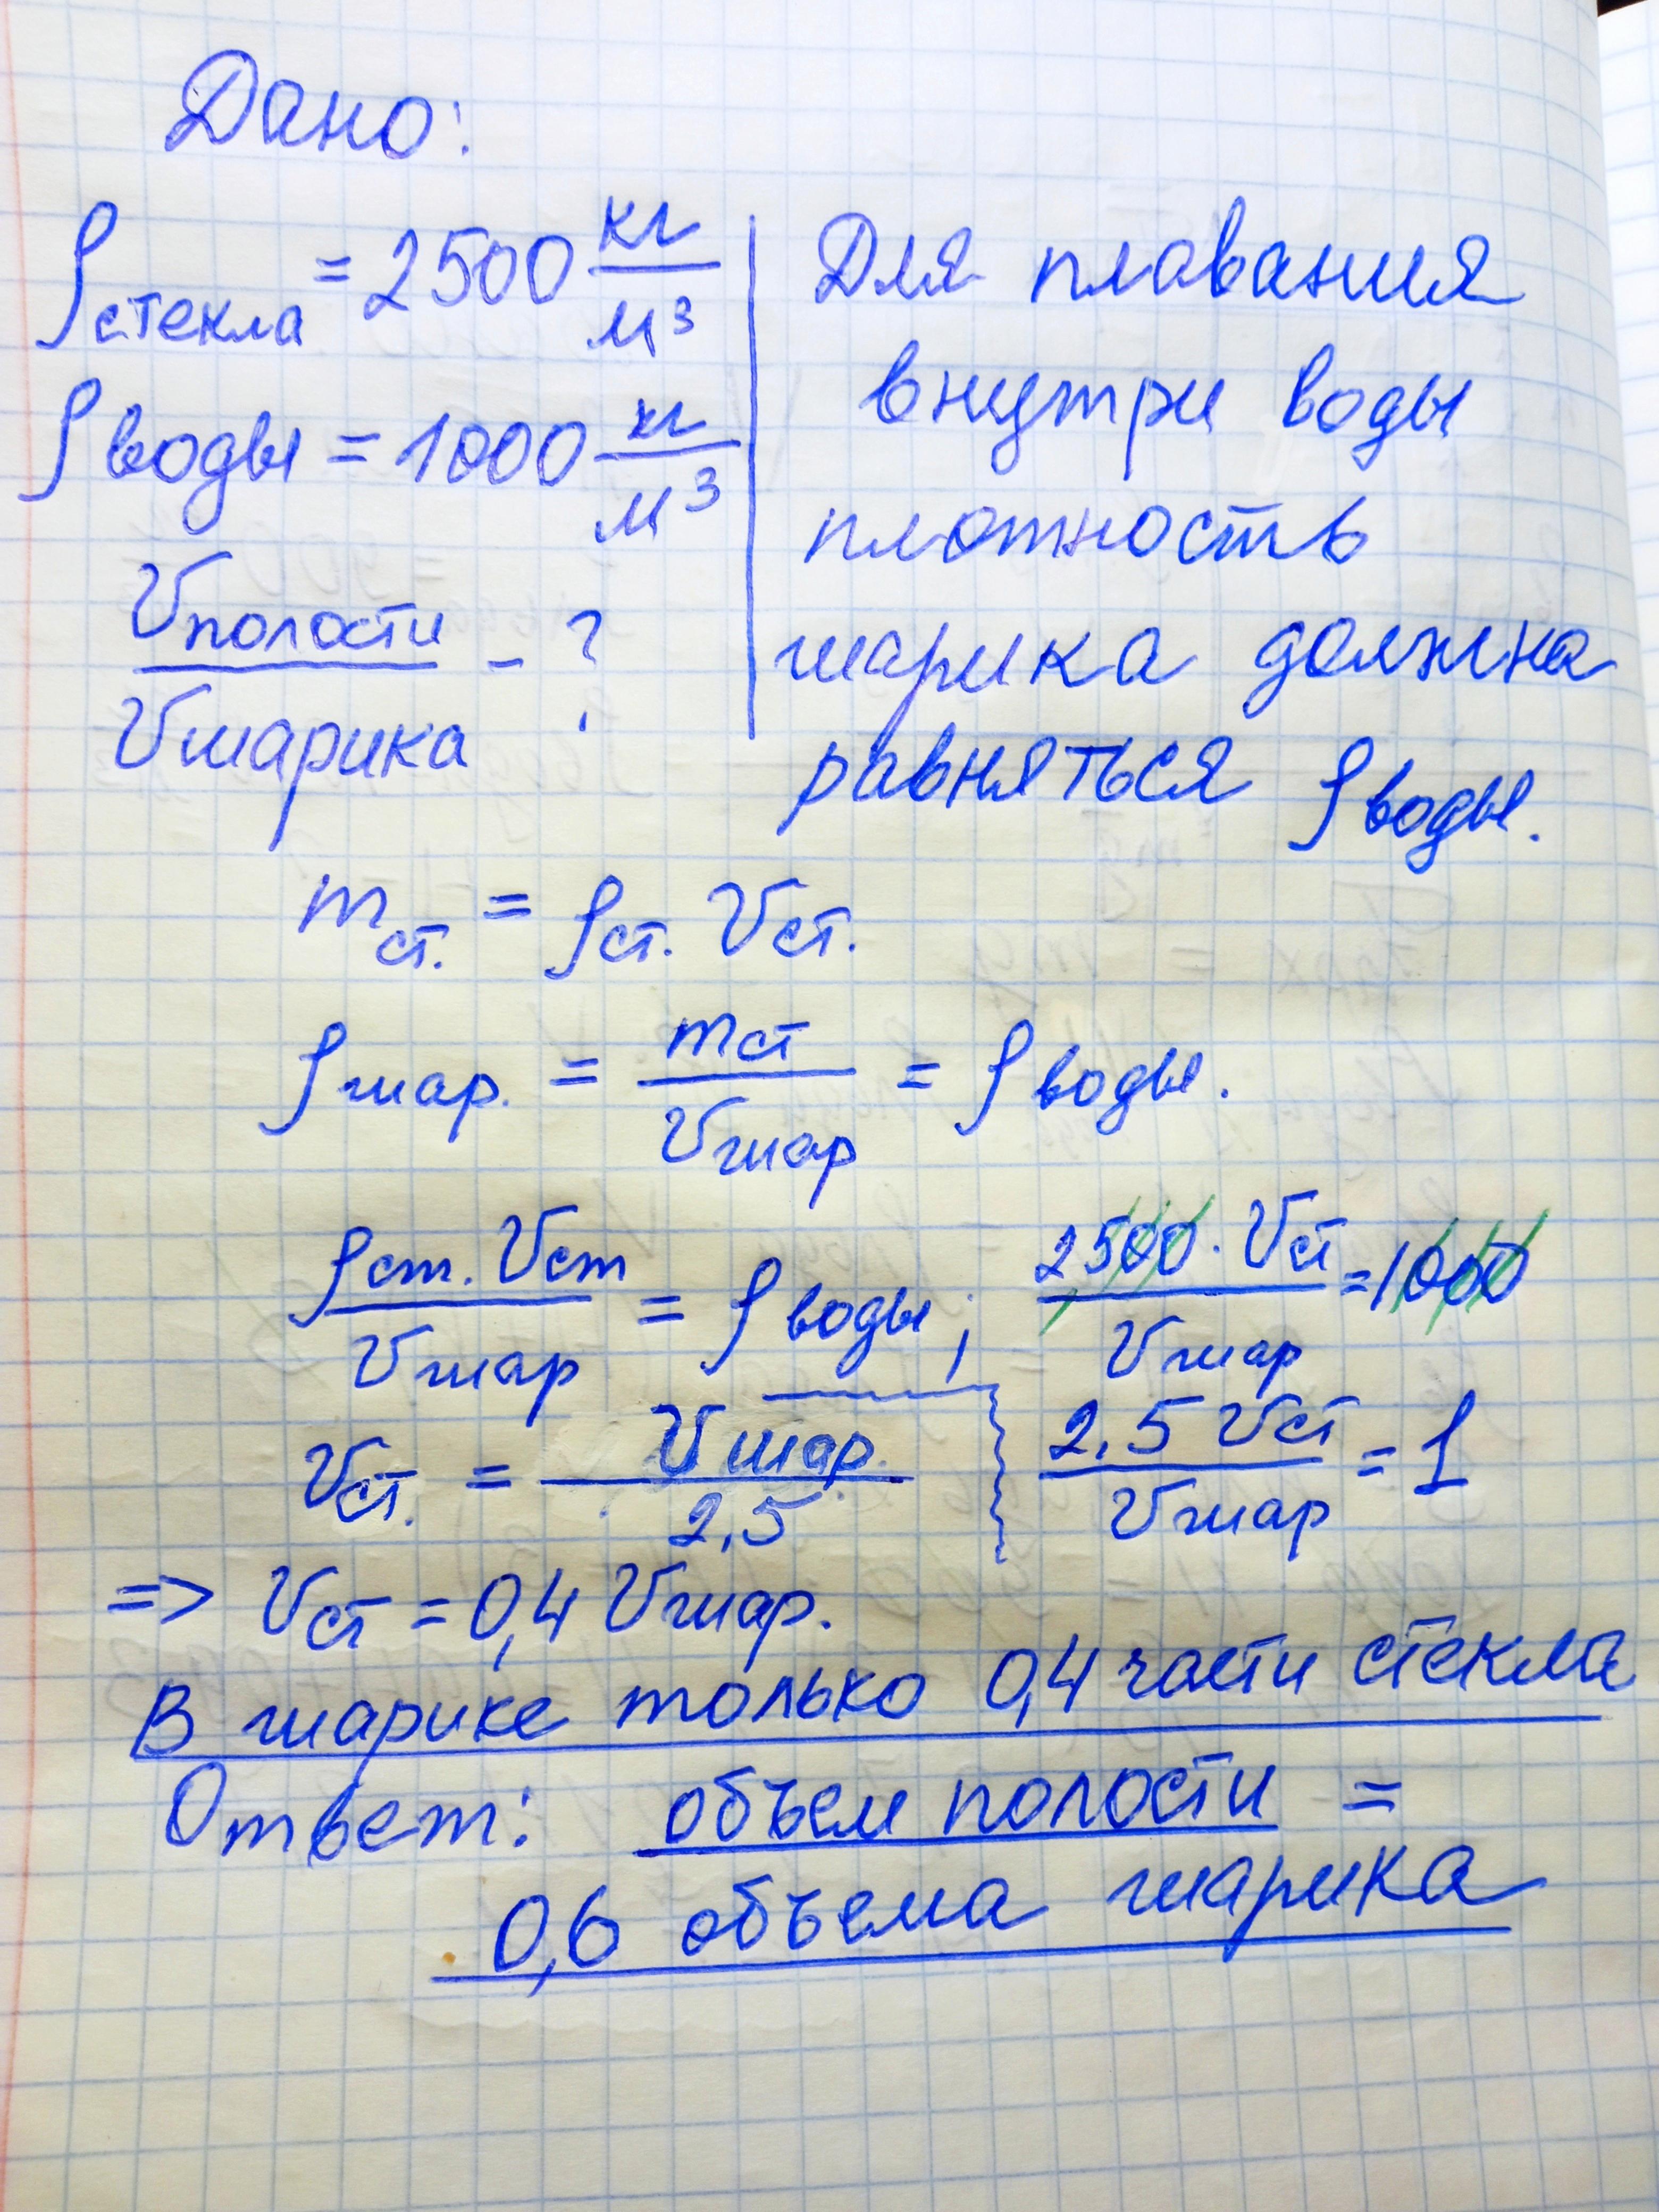 Дано:
ρ стекла = 2500 кг/м³
ρ воды = 1000 кг/м³
V полости / V шарика - ?
Для плавания
внутри воды
плотность
шарика должна
равняться ρ воды.
m ст. = ρ ст. V ст.
ρ шар. = m ст / V шар = ρ воды.
ρ ст. V ст / V шар = ρ воды; 2500 · V ст / V шар = 1000
V ст. = V шар. / 2,5 2,5 V ст / V шар = 1
=> V ст = 0,4 V шар.
В шарике только 0,4 части стекла
Ответ: объем полости =
0,6 объема шарика